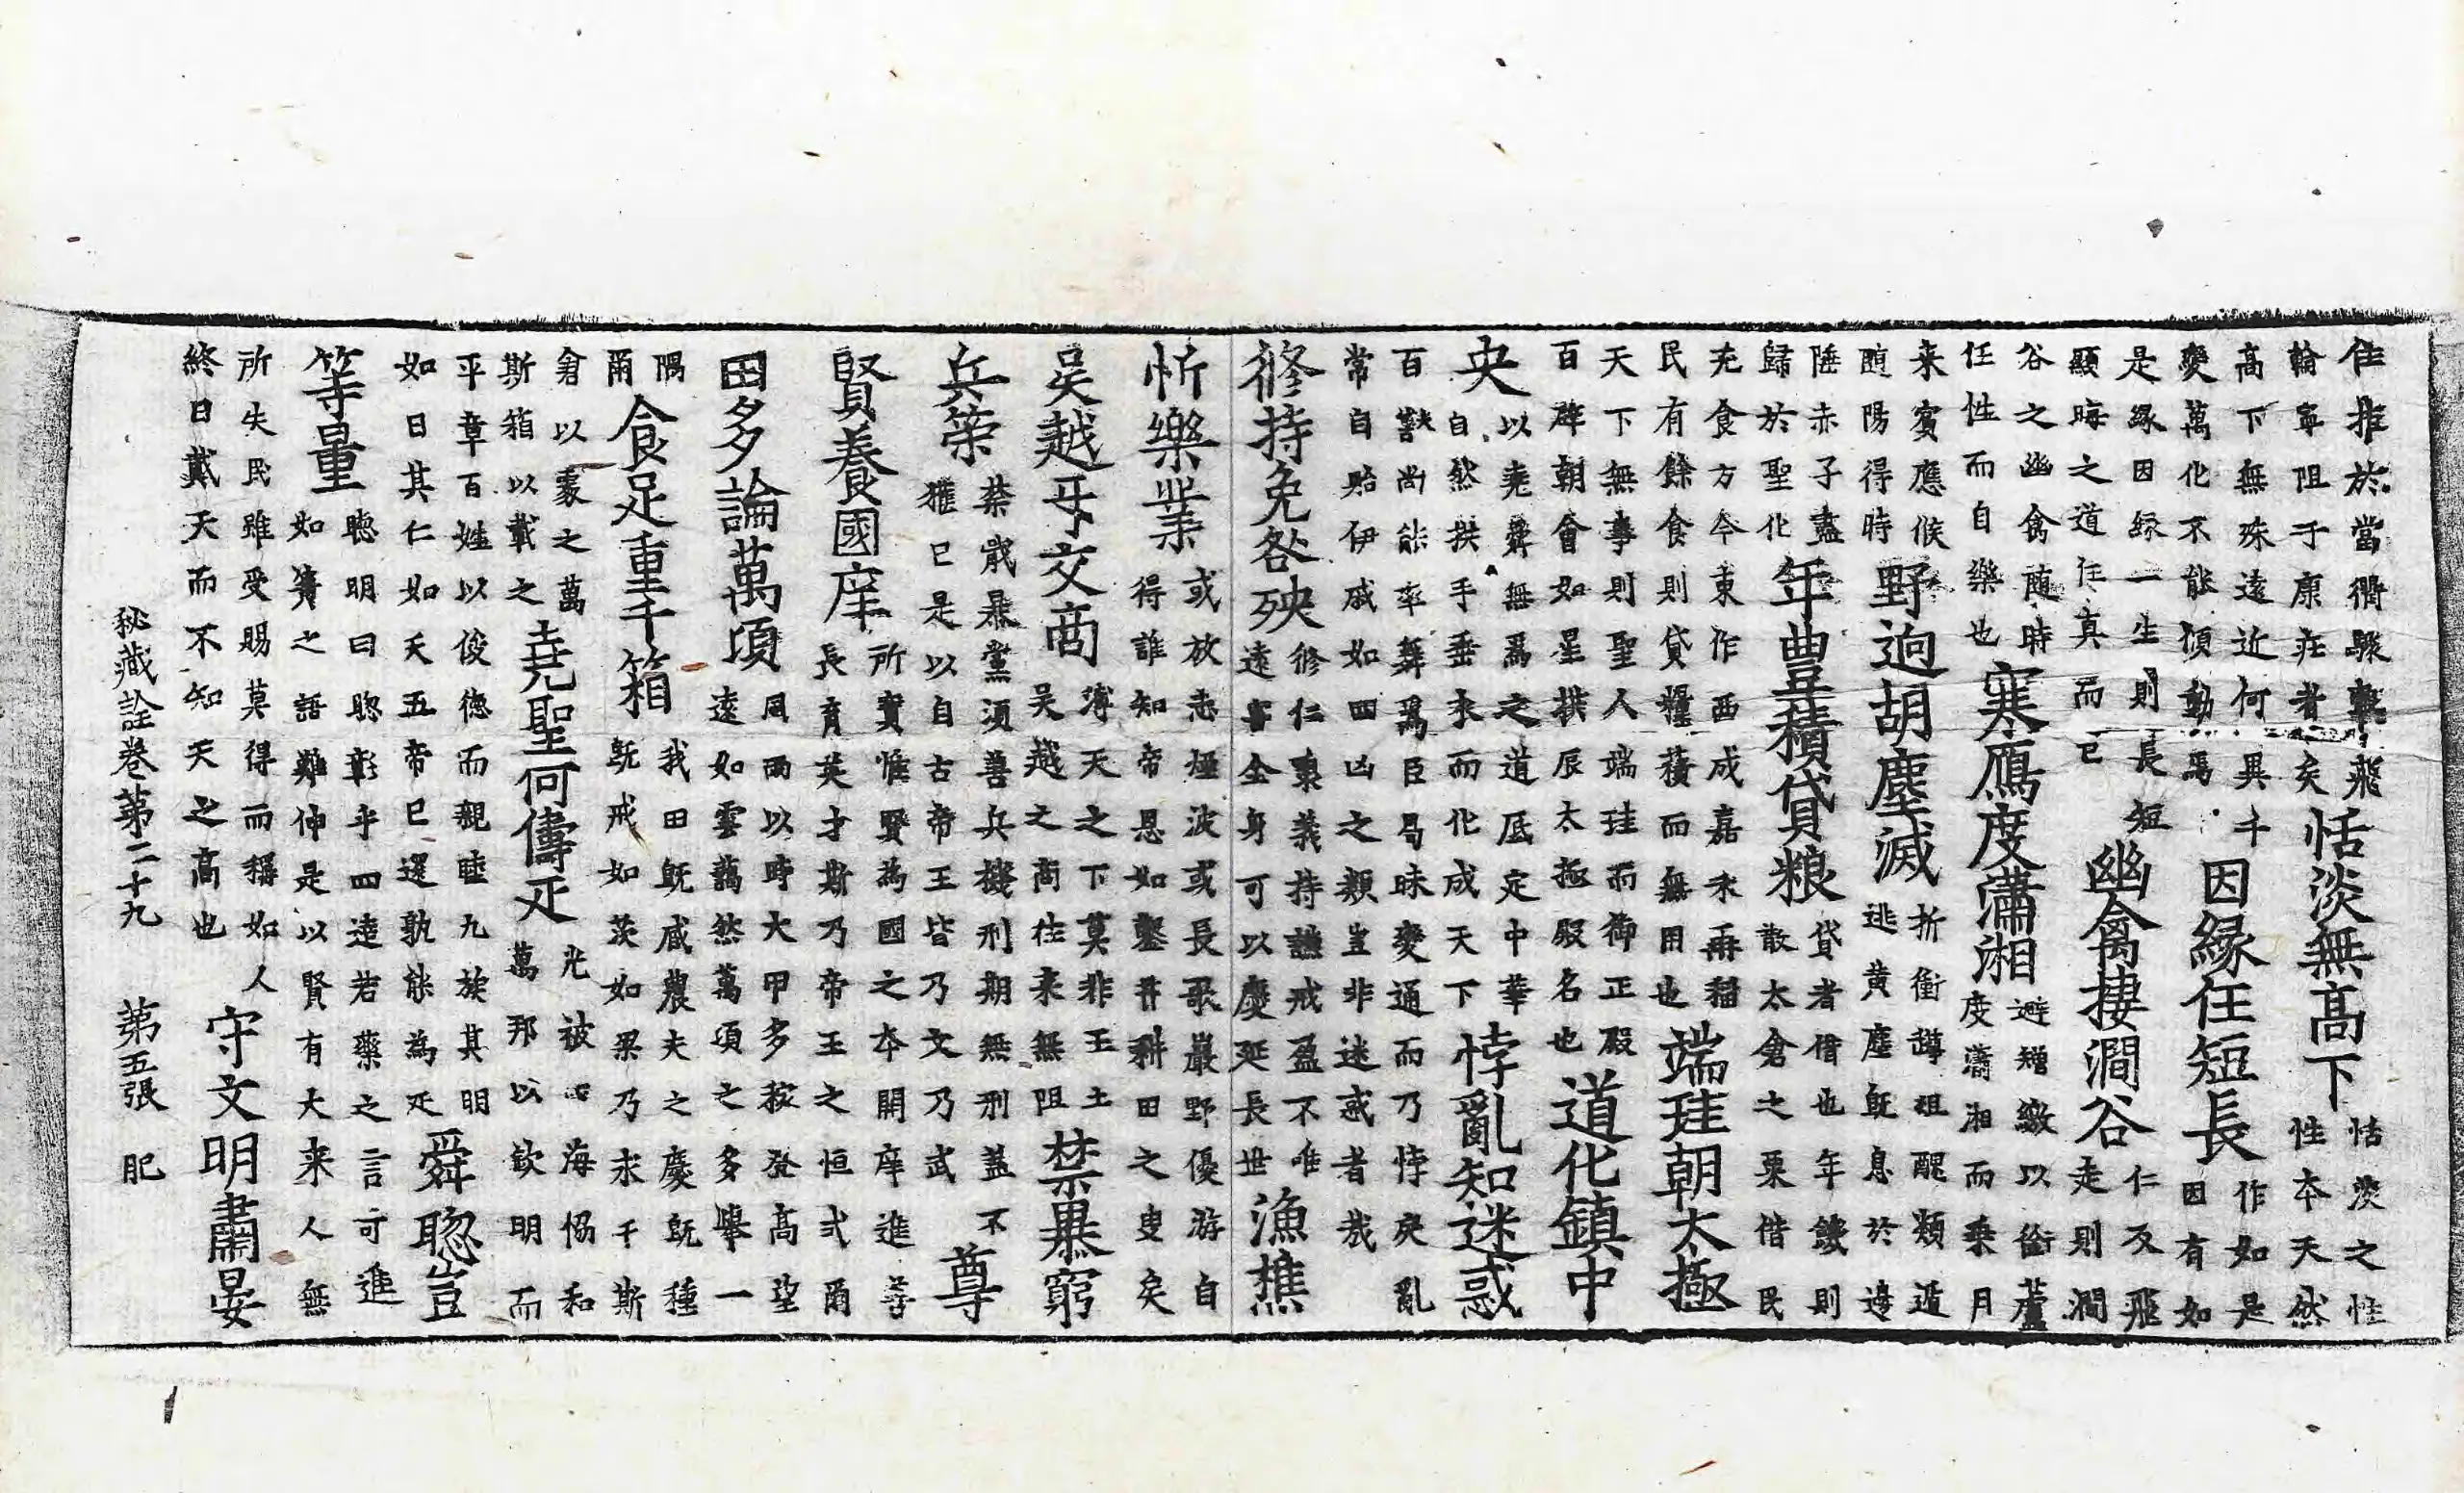 住推於當衢驟擊飛
輪寧阻于康莊者矣
恬淡無高下
恬淡之性
性本天然
高下無殊遠近何異千
變萬化不能傾動焉
因緣任短長
作如是
因有如
是緣因緣一生則長短
顯晦之道任真而已
幽禽捿澗谷
仁及飛
走則澗
谷之幽禽随時
任性而自樂也
寒鴈度瀟湘
避矰繳以銜蘆
度瀟湘而乘月
来賓應候
随陽得時
野逈胡塵滅
折衝罇俎醜類遁
逃黄塵既息於邊
陲赤子盡
歸於聖化
年豊積貸粮
貸者借也年饑則
散太倉之粟借民
充食方今東作西成嘉禾再稲
民有餘食則貸糧積而無用也
端珪朝太極
天下無事則聖人端珪而御正殿
百辟朝會如星拱辰太極殿名也
道化鎮中
央
以堯舜無爲之道底定中華
自然拱手垂衣而化成天下
悖亂知迷惑
百獸尚能率舞焉臣曷昧變通而乃悖戾亂
常自貽伊戚如四凶之類豈非迷惑者哉
修持免咎殃
修仁稟義持謙戒盈不唯
遠害全身可以慶延長世
漁樵
忻樂業
或放志煙波或長歌巖野優游自
得誰知帝恩如鑿井耕田之叟矣
吴越牙交商
溥天之下莫非王土
吴越之商往来無阻
禁暴窮
兵榮
禁戢暴黨須善兵機刑期無刑蓋不
獲已是以自古帝王皆乃文乃武
尊
賢養國庠
所寶惟賢為國之本開庠進善
長育英才斯乃帝王之恒式爾
田多論萬頃
同雨以時大甲多稼登高望
遠如雲藹然萬頃之多舉一
隅
爾
食足重千箱
我田既咸農夫之慶既種
既戒如茨如果乃求千斯
倉以之萬
斯箱以載之
堯聖何儔疋
光被四海恊和
萬邦以欽明而
平章百姓以俊德而親睦九族其明
如日其仁如天五帝已還孰能為疋
舜聦豈
等量
聴明曰聦彰乎四逹若藥之言可進
如簧之語難伸是以賢有大来人無
所失民雖受賜莫得而稱如人
終日戴天而不知天之高也
守文明肅晏
秘藏詮卷第二十九 第五張 肥